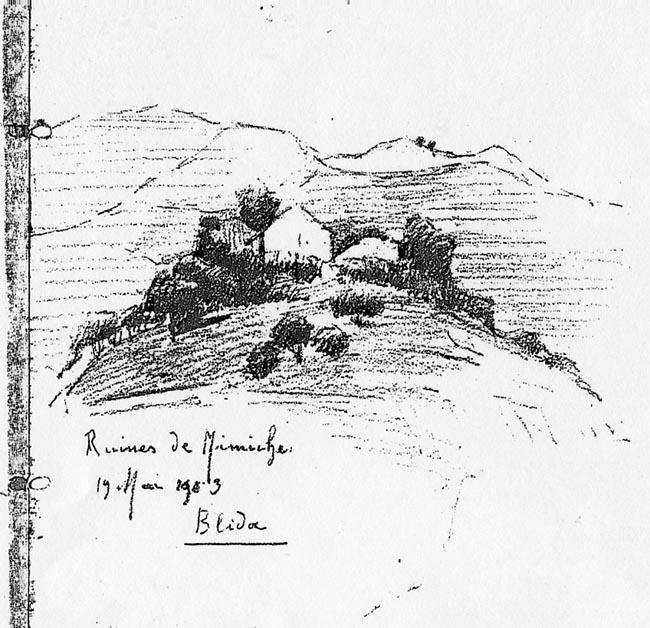 Ruines de Mimiche.
19 Mai
Blida